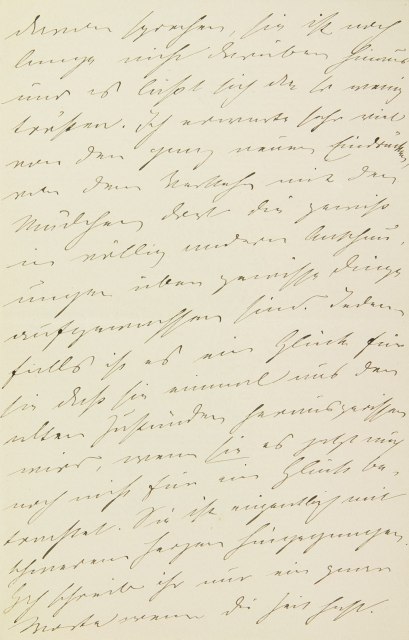 davon sprechen, sie ist noch
lange nicht darüber hinaus
und es läßt sich da so wenig
trösten. Ich erwarte sehr viel
von den ganz neuen Eindrücken,
von dem Verkehr mit den
Mädchen dort die gewiß
in völlig anderen Anschau-
ungen über gewisse Dinge
aufgewachsen sind. Jeden-
falls ist es ein Glück für
sie daß sie einmal aus den
alten Zuständen herausgerissen
wird, wenn sie es jetzt auch
noch nicht für ein Glück be-
trachtet. Sie ist eigentlich mit
schwerem Herzen hingegangen.
Ich schreibe ihr nur ein paar
Worte wenn die Zeit